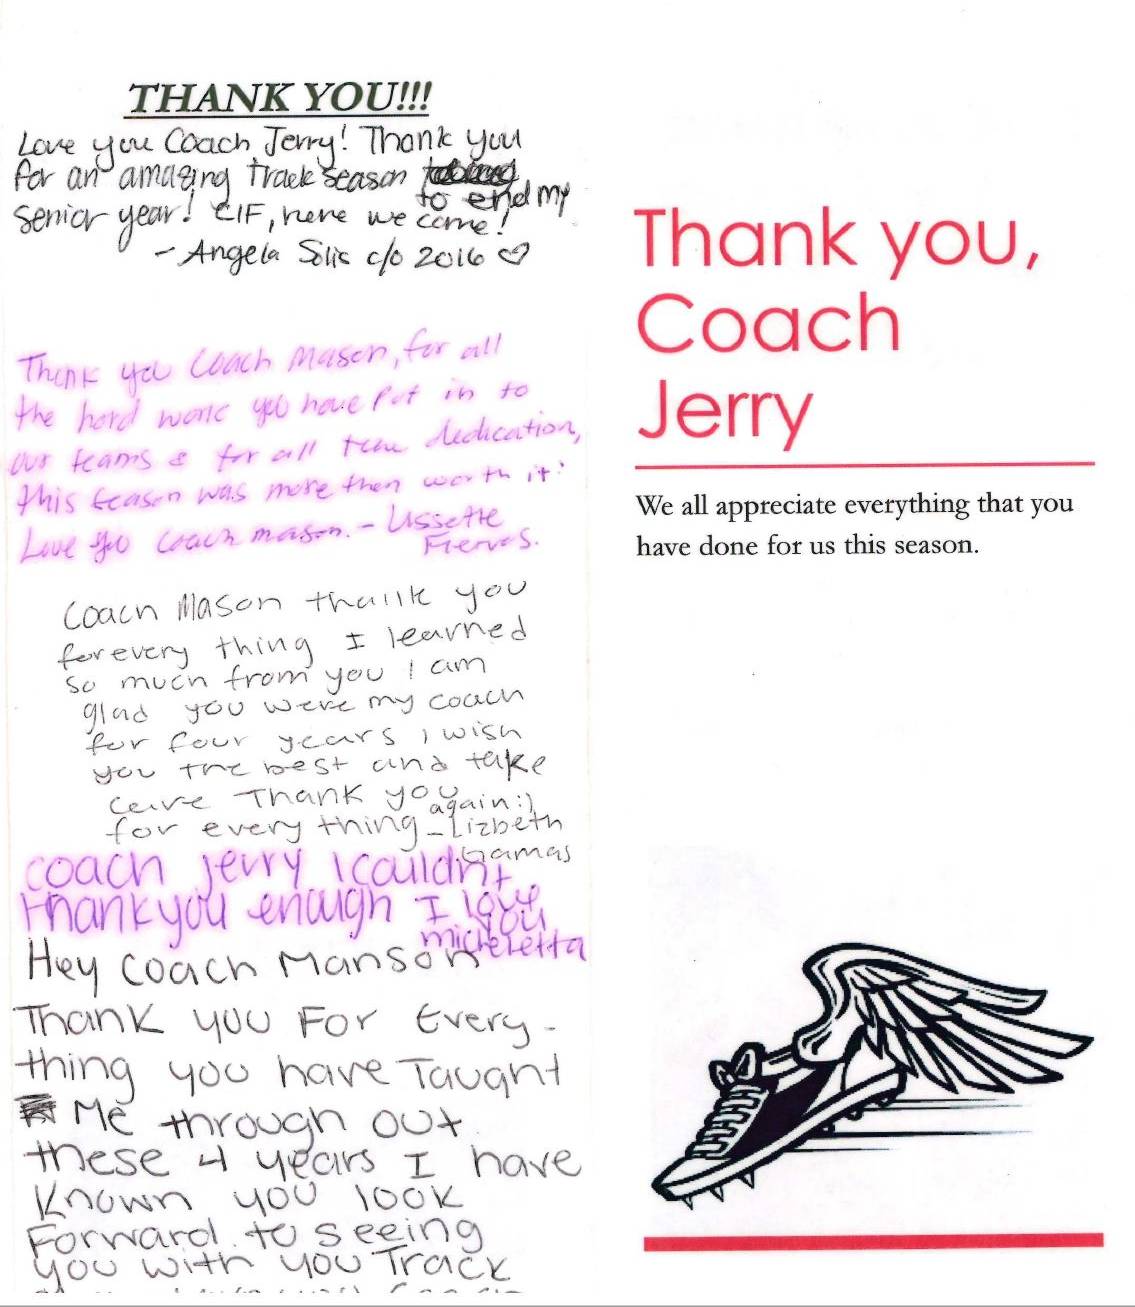 THANK YOU!!!
Love you Coach Jerry! Thank you
for an amazing track season
to end my
senior year! CIF, here we come!
- Angela Solis c/o 2016 ♡
Thank you Coach Mason, for all
the hard work you have put in to
our teams & for all the dedication,
this season was more then worth it!
Love you coach mason. - Lissette
Coach Mason thank you
for every thing I learned
so much from you I am
glad you were my coach
for four years, I wish
you the best and take
care Thank you
again :)
for every thing - Lizbeth
Gamas
coach jerry I couldn't
thank you enough I love
you
micheletta
Hey Coach Manson
Thank you For Every-
thing you have Taught
Me through out
these 4 years I have
Known you look
Forward to seeing
you with you Track
Thank you,
Coach
Jerry
We all appreciate everything that you
have done for us this season.